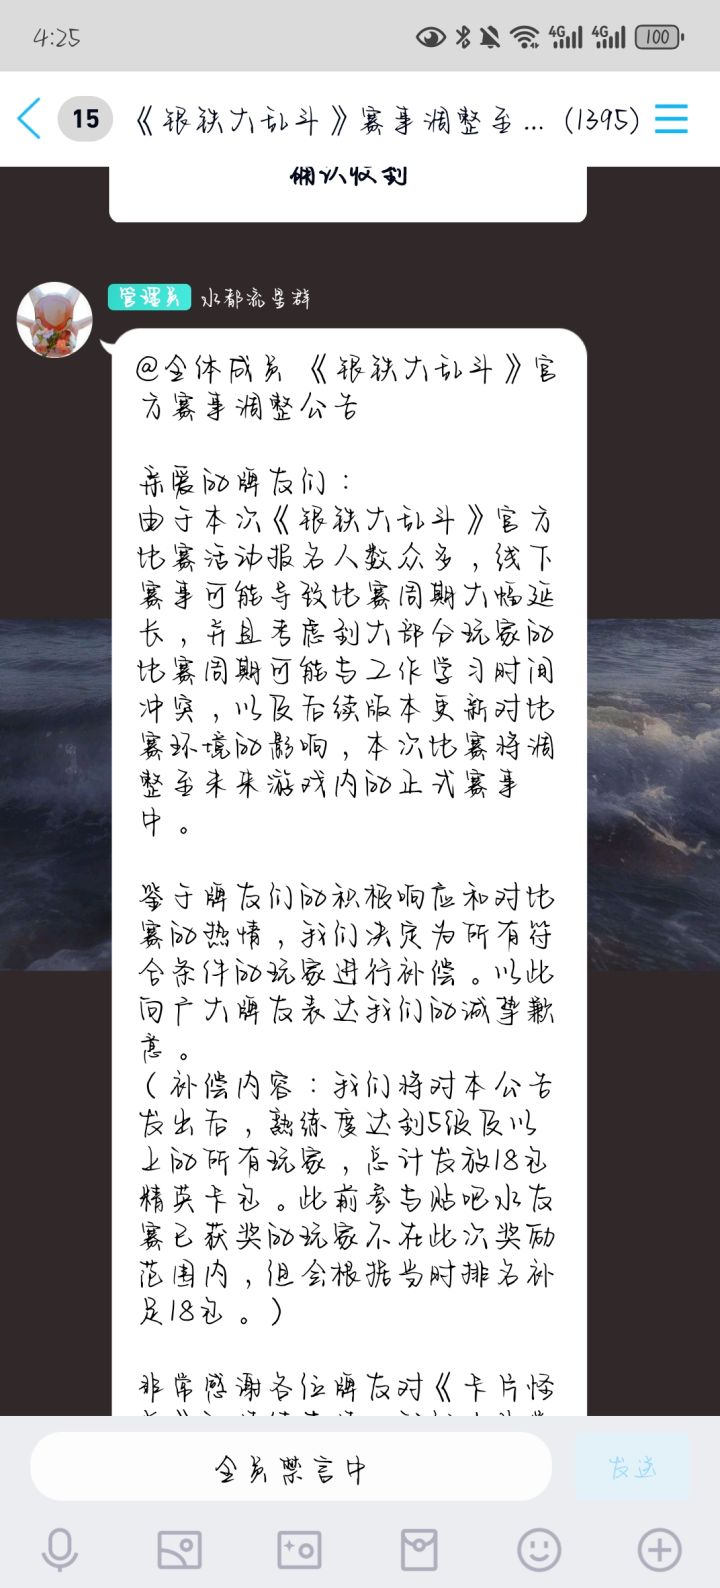 4:25
4G
4G
100
15
《银铁大乱斗》赛事调整至... (1395)
确认收到
管理员 水都流星群
@全体成员 《银铁大乱斗》官
方赛事调整公告
亲爱的牌友们：
由于本次《银铁大乱斗》官方
比赛活动报名人数众多，线下
赛事可能导致比赛周期大幅延
长，并且考虑到大部分玩家的
比赛周期可能与工作学习时间
冲突，以及后续版本更新对比
赛环境的影响，本次比赛将调
整至未来游戏内的正式赛事
中。
鉴于牌友们的积极响应和对比
赛的热情，我们决定为所有符
合条件的玩家进行补偿。以此
向广大牌友表达我们的诚挚歉
意。
（补偿内容：我们将对本公告
发出后，熟练度达到5级及以
上的所有玩家，总计发放18包
精英卡包。此前参与贴吧水友
赛已获奖的玩家不在此次奖励
范围内，但会根据当时排名补
足18包。）
非常感谢各位牌友对《卡片怪
全员禁言中
发送